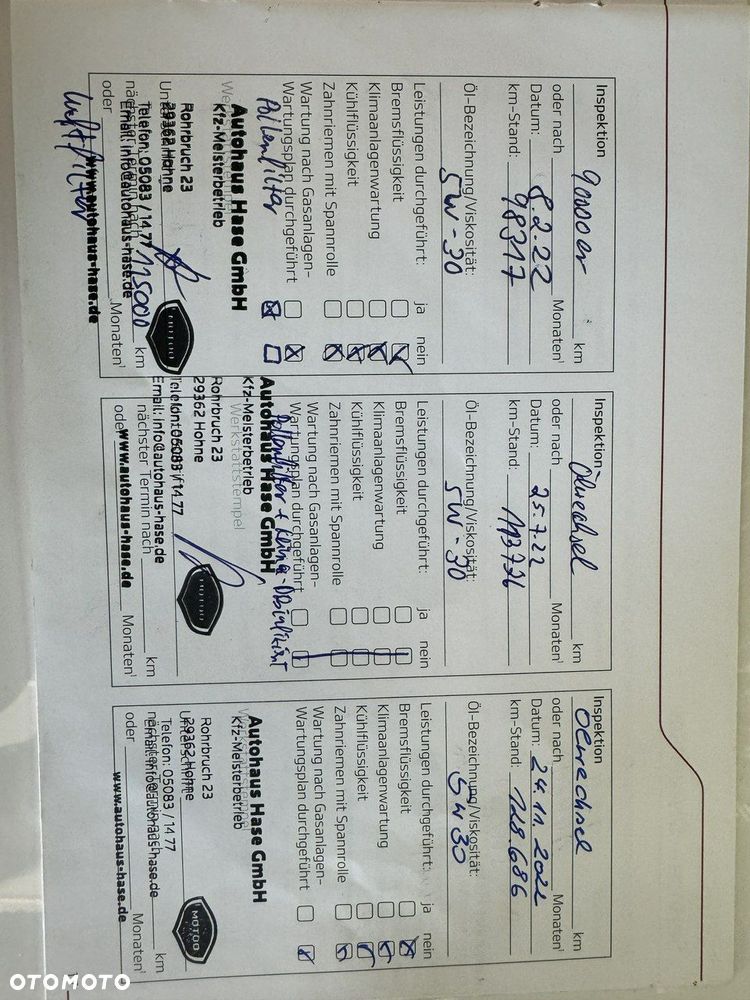 Inspektion 90000er km
oder nach Monaten¹
Datum: 8.2.22
km-Stand: 98317
Öl-Bezeichnung/Viskosität:
5W-30
Leistungen durchgeführt: ja nein
Bremsflüssigkeit
Klimaanlagenwartung
Kühlflüssigkeit
Zahnriemen mit Spannrolle
Wartung nach Gasanlagen-
Wartungsplan durchgeführt
Pollenfilter
Autohaus Hase GmbH
Kfz-Meisterbetrieb
Rohrbruch 23
29362 Hohne
Telefon: 05083 / 14 77
nächster Termin nach 115000 km
Email: info@autohaus-hase.de
oder Monaten¹
www.autohaus-hase.de
Luftfilter
MOTOO
Inspektion Ölwechsel km
oder nach Monaten¹
Datum: 25.7.22
km-Stand: 113726
Öl-Bezeichnung/Viskosität:
5W-30
Leistungen durchgeführt: ja nein
Bremsflüssigkeit
Klimaanlagenwartung
Kühlflüssigkeit
Zahnriemen mit Spannrolle
Wartung nach Gasanlagen-
Wartungsplan durchgeführt
Pollenfilter + Klima-Desinfizirt
Autohaus Hase GmbH
Werkstattstempel
Kfz-Meisterbetrieb
Rohrbruch 23
29362 Hohne
Telefon: 05083 / 14 77
Email: info@autohaus-hase.de
nächster Termin nach km
oder Monaten¹
www.autohaus-hase.de
MOTOO
Inspektion Oelwechsel km
oder nach Monaten¹
Datum: 24.11.2022
km-Stand: 128.686
Öl-Bezeichnung/Viskosität:
5W30
Leistungen durchgeführt: ja nein
Bremsflüssigkeit
Klimaanlagenwartung
Kühlflüssigkeit
Zahnriemen mit Spannrolle
Wartung nach Gasanlagen-
Wartungsplan durchgeführt
Autohaus Hase GmbH
Kfz-Meisterbetrieb
Rohrbruch 23
29362 Hohne
Telefon: 05083 / 14 77
nächster Termin nach km
Email: info@autohaus-hase.de
oder Monaten¹
www.autohaus-hase.de
MOTOO
OTOMOTO